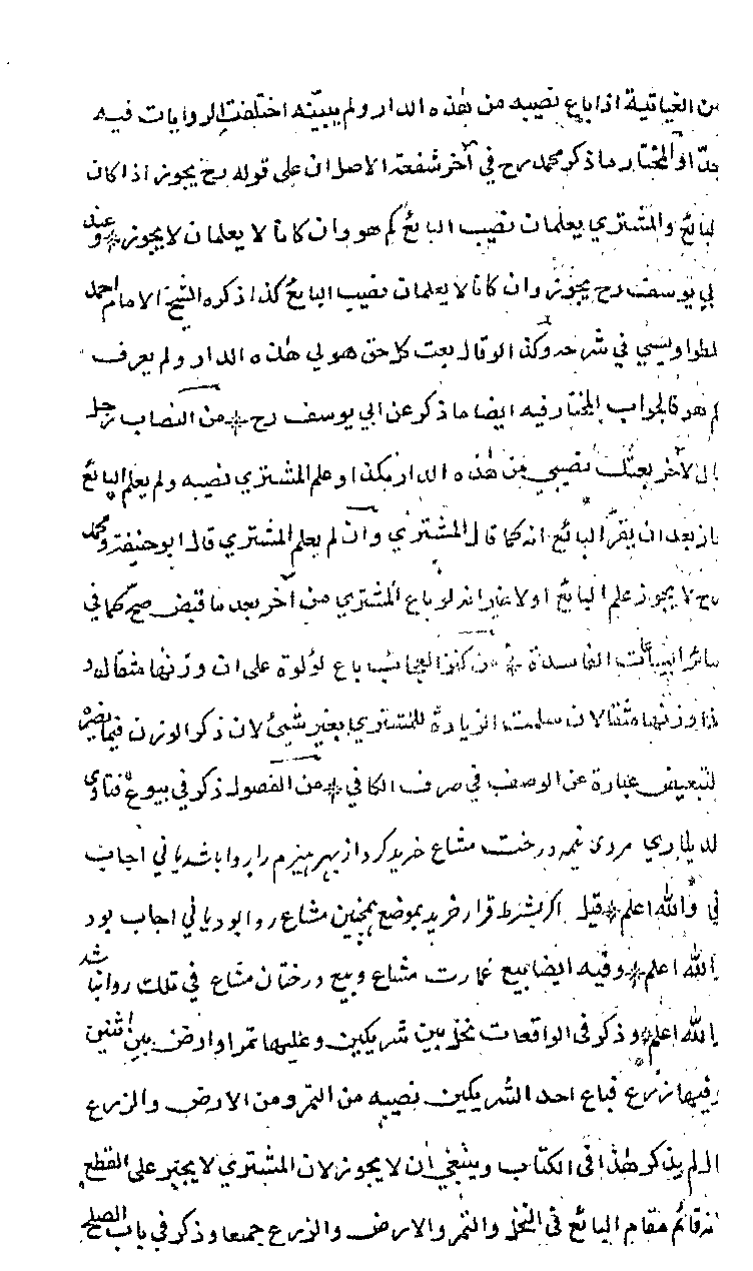 من الغياثية اذا باع نصيبه من هذه الدار ولم يبينه اختلفت الروايات فيه
جدا والمختار ما ذكر محمد رح في آخر شفعة الاصل ان على قوله رح يجوز اذا كان
البائع والمشتري يعلمان نصيب البائع كم هو وان كانا لا يعلمان لا يجوز * وعند
ابي يوسف رح يجوز وان كانا لا يعلمان نصيب البائع كذا ذكره الشيخ الامام احمد
الطواويسي في شرحه وكذا لو قال بعت كل حق هو لي هذه الدار ولم يعرف
كم هو فالجواب المختار فيه ايضا ما ذكر عن ابي يوسف رح * من النصاب رجل
قال لآخر بعتك نصيبي من هذه الدار بكذا وعلم المشتري نصيبه ولم يعلم البائع
جاز بعد ان يقر البائع انه كما قال المشتري وان لم يعلم المشتري قال ابو حنيفة ومحمد
رح لا يجوز علم البائع اولا غير انه لو باع المشتري من آخر بعد ما قبض صح كما في
سائر البياعات الفاسدة * من كنز العجائب باع لؤلؤة على ان وزنها مثقال و
اذا وزنها مثقالان سلمت الزيادة للمشتري بغير شيئ لان ذكر الوزن فيما يضره
التبعيض عبارة عن الوصف في صرف الكافي * من الفصول ذكر في بيوع فتاوى
الديناري مردى نيمه درخت مشاع خريد كرد از بهر هيزم را روا باشد يا ني اجاب
ني والله اعلم * قيل اكر بشرط قرار خريد بموضع همچنين مشاع روا بود يا ني اجاب بود
والله اعلم * وفيه ايضا بيع عمارت مشاع وبيع درختان مشاع في تلك روا نباشد
والله اعلم * وذكر فى الواقعات نخل بين شريكين وعليها ثمر او ارض بين اثنين
وفيها زرع فباع احد الشريكين نصيبه من الثمر ومن الارض والزرع
قال لم يذكر هذا فى الكتاب وينبغي ان لا يجوز لان المشتري لا يجبر على القطع
لانه قائم مقام البائع فى النخل والثمر والارض والزرع جميعا وذكر في باب الصلح